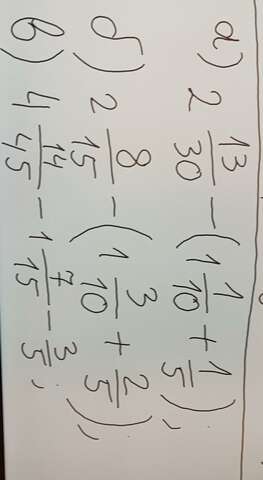 а) 2 13/30 − (1 1/10 + 1/5);
б) 2 8/15 − (1 3/10 + 2/5);
в) 4 14/45 − 1 7/15 − 3/5;